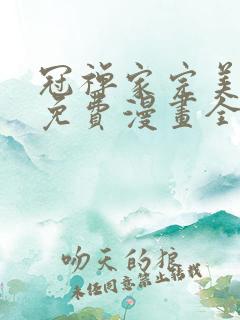 冠禅家宗美
免費漫畫全
吻天的狼
未经同意禁止转载